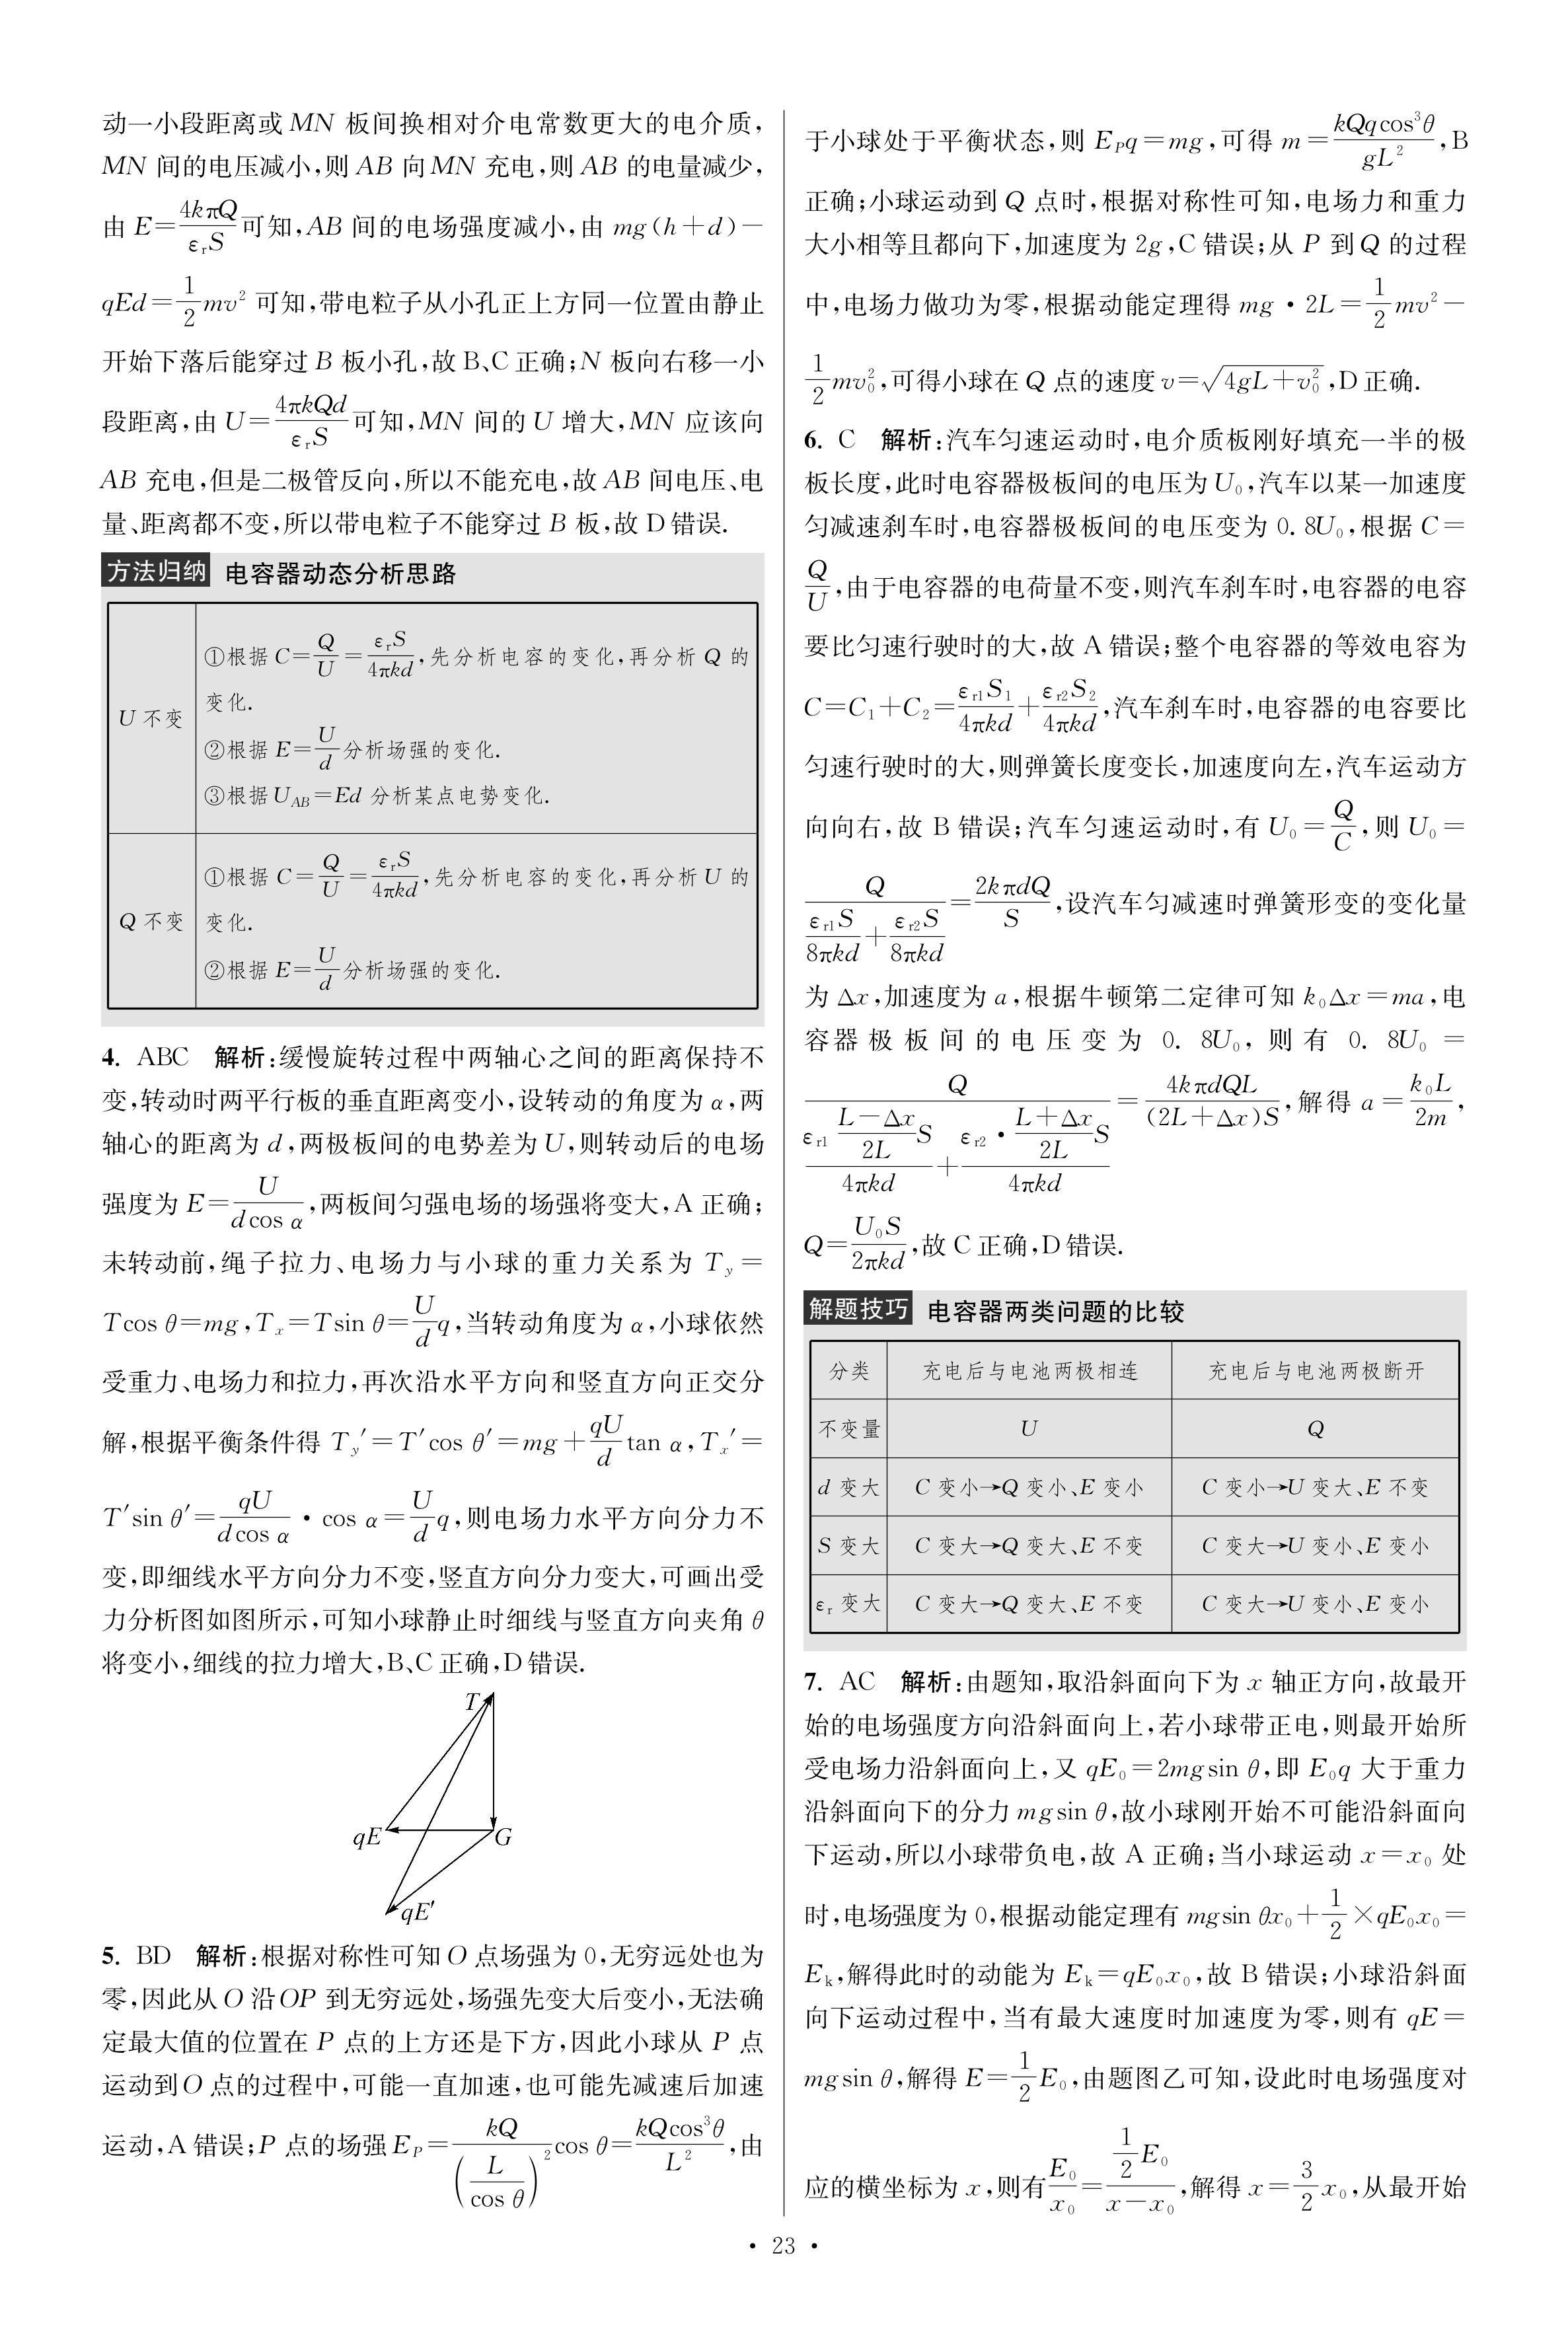 动一小段距离或 MN 板间换相对介电常数更大的电介质,
MN 间的电压减小,则 AB 向 MN 充电,则 AB 的电量减少,
由 E=4kπQ/(ε_rS)可知,AB 间的电场强度减小,由 mg(h+d)-
qEd=1/2 mv² 可知,带电粒子从小孔正上方同一位置由静止
开始下落后能穿过 B 板小孔,故 B、C 正确;N 板向右移一小
段距离,由 U=4πkQd/(ε_rS)可知,MN 间的 U 增大,MN 应该向
AB 充电,但是二极管反向,所以不能充电,故 AB 间电压、电
量、距离都不变,所以带电粒子不能穿过 B 板,故 D 错误.
方法归纳 电容器动态分析思路
U 不变
①根据 C=Q/U=ε_rS/(4πkd),先分析电容的变化,再分析 Q 的
变化.
②根据 E=U/d 分析场强的变化.
③根据 U_AB=Ed 分析某点电势变化.
Q 不变
①根据 C=Q/U=ε_rS/(4πkd),先分析电容的变化,再分析 U 的
变化.
②根据 E=U/d 分析场强的变化.
4. ABC 解析:缓慢旋转过程中两轴心之间的距离保持不
变,转动时两平行板的垂直距离变小,设转动的角度为 α,两
轴心的距离为 d,两极板间的电势差为 U,则转动后的电场
强度为 E=U/(dcos α),两板间匀强电场的场强将变大,A 正确;
未转动前,绳子拉力、电场力与小球的重力关系为 T_y=
Tcos θ=mg,T_x=Tsin θ=U/d q,当转动角度为 α,小球依然
受重力、电场力和拉力,再次沿水平方向和竖直方向正交分
解,根据平衡条件得 T_y′=T′cos θ′=mg+qU/d tan α,T_x′=
T′sin θ′=qU/(dcos α)·cos α=U/d q,则电场力水平方向分力不
变,即细线水平方向分力不变,竖直方向分力变大,可画出受
力分析图如图所示,可知小球静止时细线与竖直方向夹角 θ
将变小,细线的拉力增大,B、C 正确,D 错误.
T
qE
G
qE′
5. BD 解析:根据对称性可知 O 点场强为 0,无穷远处也为
零,因此从 O 沿 OP 到无穷远处,场强先变大后变小,无法确
定最大值的位置在 P 点的上方还是下方,因此小球从 P 点
运动到 O 点的过程中,可能一直加速,也可能先减速后加速
运动,A 错误;P 点的场强 E_P=kQ/(L/cos θ)² cos θ=kQcos³θ/L²,由
于小球处于平衡状态,则 E_Pq=mg,可得 m=kQqcos³θ/(gL²),B
正确;小球运动到 Q 点时,根据对称性可知,电场力和重力
大小相等且都向下,加速度为 2g,C 错误;从 P 到 Q 的过程
中,电场力做功为零,根据动能定理得 mg·2L=1/2 mv²-
1/2 mv₀²,可得小球在 Q 点的速度 v=√(4gL+v₀²),D 正确.
6. C 解析:汽车匀速运动时,电介质板刚好填充一半的极
板长度,此时电容器极板间的电压为 U₀,汽车以某一加速度
匀减速刹车时,电容器极板间的电压变为 0.8U₀,根据 C=
Q/U,由于电容器的电荷量不变,则汽车刹车时,电容器的电容
要比匀速行驶时的大,故 A 错误;整个电容器的等效电容为
C=C₁+C₂=ε_r1S₁/(4πkd)+ε_r2S₂/(4πkd),汽车刹车时,电容器的电容要比
匀速行驶时的大,则弹簧长度变长,加速度向左,汽车运动方
向向右,故 B 错误;汽车匀速运动时,有 U₀=Q/C,则 U₀=
Q/(ε_r1S/(8πkd)+ε_r2S/(8πkd))=2kπdQ/S,设汽车匀减速时弹簧形变的变化量
为 Δx,加速度为 a,根据牛顿第二定律可知 k₀Δx=ma,电
容器极板间的电压变为 0.8U₀,则有 0.8U₀=
Q/(ε_r1 (L-Δx)/(2L) S/(4πkd)+ε_r2·(L+Δx)/(2L) S/(4πkd))=4kπdQL/((2L+Δx)S),解得 a=k₀L/(2m),
Q=U₀S/(2πkd),故 C 正确,D 错误.
解题技巧 电容器两类问题的比较
分类 充电后与电池两极相连 充电后与电池两极断开
不变量 U Q
d 变大 C 变小→Q 变小、E 变小 C 变小→U 变大、E 不变
S 变大 C 变大→Q 变大、E 不变 C 变大→U 变小、E 变小
ε_r 变大 C 变大→Q 变大、E 不变 C 变大→U 变小、E 变小
7. AC 解析:由题知,取沿斜面向下为 x 轴正方向,故最开
始的电场强度方向沿斜面向上,若小球带正电,则最开始所
受电场力沿斜面向上,又 qE₀=2mgsin θ,即 E₀q 大于重力
沿斜面向下的分力 mgsin θ,故小球刚开始不可能沿斜面向
下运动,所以小球带负电,故 A 正确;当小球运动 x=x₀ 处
时,电场强度为 0,根据动能定理有 mgsin θx₀+1/2×qE₀x₀=
E_k,解得此时的动能为 E_k=qE₀x₀,故 B 错误;小球沿斜面
向下运动过程中,当有最大速度时加速度为零,则有 qE=
mgsin θ,解得 E=1/2 E₀,由题图乙可知,设此时电场强度对
应的横坐标为 x,则有 E₀/x₀=(1/2 E₀)/(x-x₀),解得 x=3/2 x₀,从最开始
· 23 ·